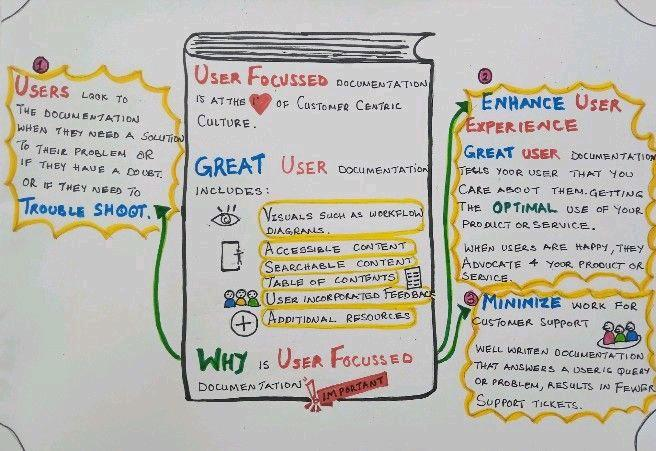 USER FOCUSSED DOCUMENTATION
IS AT THE OF CUSTOMER CENTRIC
CULTURE.
GREAT USER DOCUMENTATION
INCLUDES:
VISUALS SUCH AS WORKFLOW
DIAGRAMS.
ACCESSIBLE CONTENT
SEARCHABLE CONTENT
TABLE OF CONTENTS
USER INCORPORATED FEEDBACK
ADDITIONAL RESOURCES
WHY IS USER FOCUSSED
DOCUMENTATION
IMPORTANT
1
USERS LOOK TO
THE DOCUMENTATION
WHEN THEY NEED A SOLUTION
TO THEIR PROBLEM OR
IF THEY HAVE A DOUBT.
OR IF THEY NEED TO
TROUBLE SHOOT.
2
ENHANCE USER
EXPERIENCE
GREAT USER DOCUMENTATION
TELLS YOUR USER THAT YOU
CARE ABOUT THEM. GETTING
THE OPTIMAL USE OF YOUR
PRODUCT OR SERVICE.
WHEN USERS ARE HAPPY, THEY
ADVOCATE 4 YOUR PRODUCT OR
SERVICE.
3
MINIMIZE WORK FOR
CUSTOMER SUPPORT
WELL WRITTEN DOCUMENTATION
THAT ANSWERS A USER'S QUERY
OR PROBLEM, RESULTS IN FEWER
SUPPORT TICKETS.